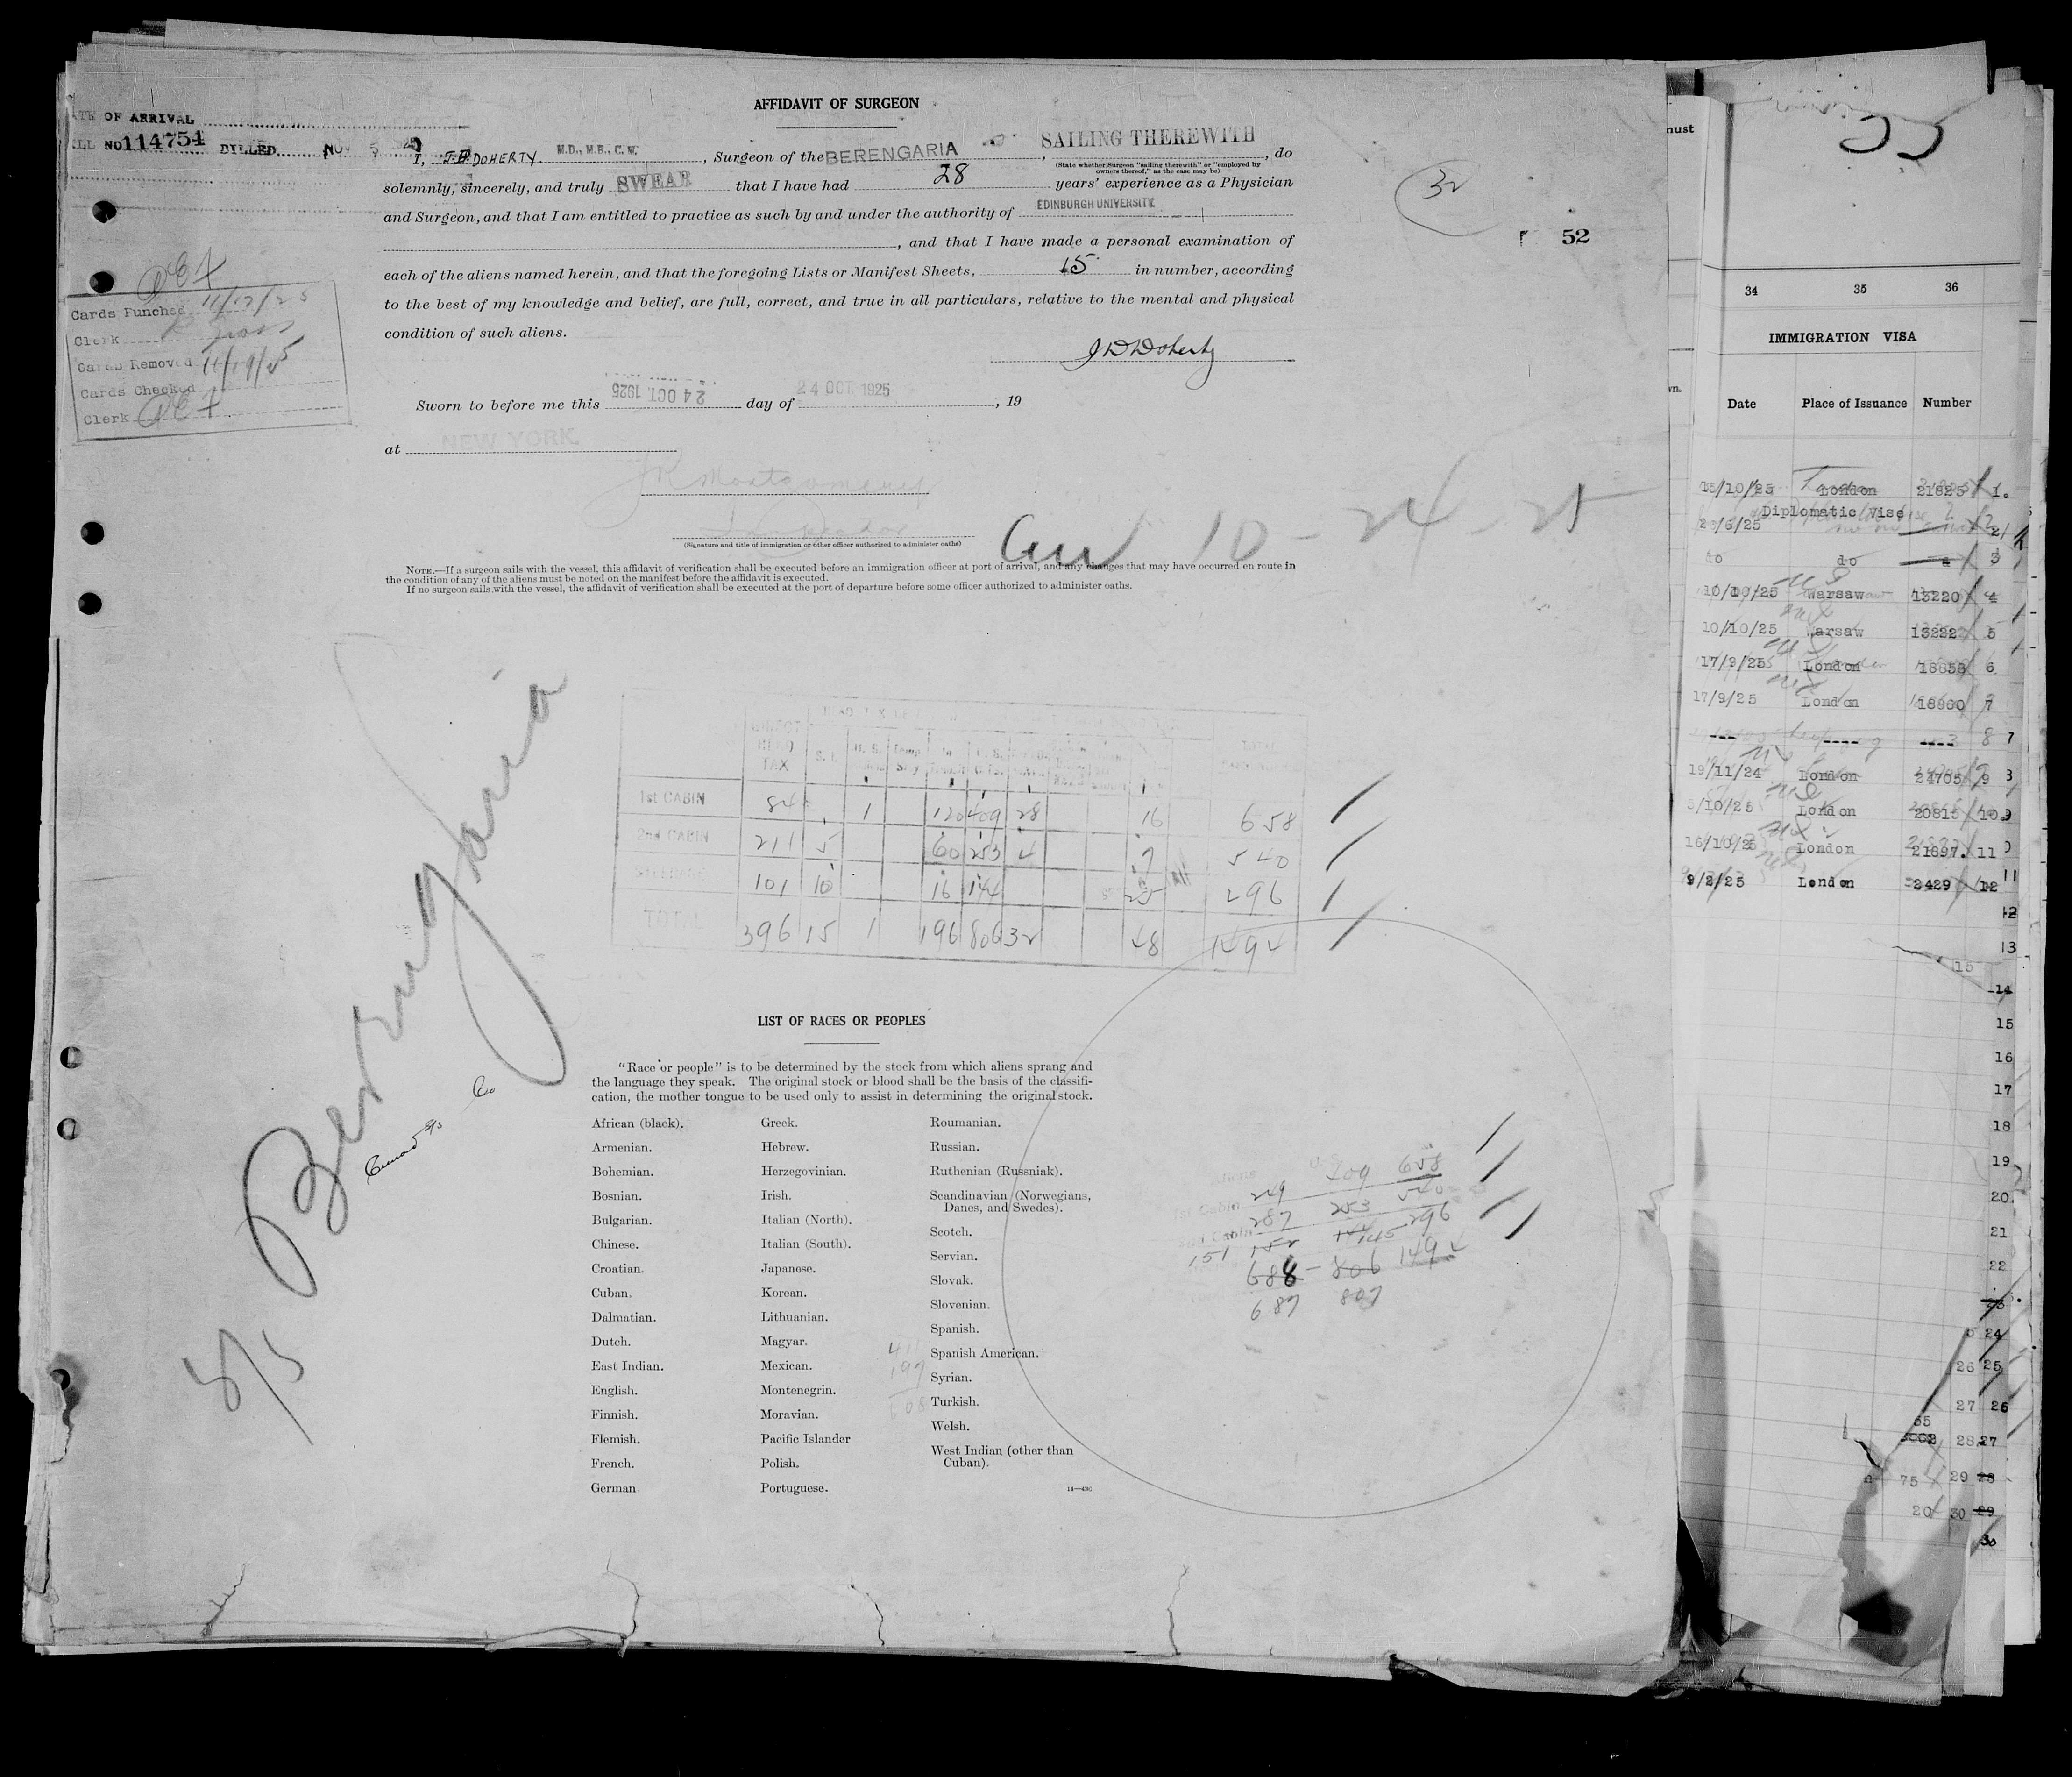 AFFIDAVIT OF SURGEON
OF ARRIVAL
No 114754 BILLED NOV 5
I, J.D. DOHERTY. M.D., M.B., C.M. , Surgeon of the BERENGARIA , SAILING THEREWITH , do
(State whether Surgeon "sailing therewith" or "employed by
owners thereof," as the case may be)
solemnly, sincerely, and truly SWEAR that I have had 28 years' experience as a Physician
and Surgeon, and that I am entitled to practice as such by and under the authority of EDINBURGH UNIVERSITY.
, and that I have made a personal examination of
each of the aliens named herein, and that the foregoing Lists or Manifest Sheets, 15 in number, according
to the best of my knowledge and belief, are full, correct, and true in all particulars, relative to the mental and physical
condition of such aliens.
J D Doherty
Sworn to before me this 24 OCT. 1925 day of 24 OCT 1925 , 19
at NEW YORK.
J K Montgomery
Inspector
(Signature and title of immigration or other officer authorized to administer oaths)
NOTE.—If a surgeon sails with the vessel, this affidavit of verification shall be executed before an immigration officer at port of arrival, and any changes that may have occurred en route in
the condition of any of the aliens must be noted on the manifest before the affidavit is executed.
If no surgeon sails with the vessel, the affidavit of verification shall be executed at the port of departure before some officer authorized to administer oaths.
32
52
Cards Punched 11/17/25
Clerk
Cards Removed 11/19/25
Cards Checked
Clerk
10-24-25
Berengaria
Cunard SS Co
HEAD TAX
1st CABIN 84 1 120 409 28 16 658
2nd CABIN 211 5 60 253 4 7 540
STEERAGE 101 10 16 144 25 296
TOTAL 396 15 1 196 806 32 48 1494
LIST OF RACES OR PEOPLES
"Race or people" is to be determined by the stock from which aliens sprang and
the language they speak. The original stock or blood shall be the basis of the classifi-
cation, the mother tongue to be used only to assist in determining the original stock.
African (black).
Armenian.
Bohemian.
Bosnian.
Bulgarian.
Chinese.
Croatian.
Cuban.
Dalmatian.
Dutch.
East Indian.
English.
Finnish.
Flemish.
French.
German
Greek.
Hebrew.
Herzegovinian.
Irish.
Italian (North).
Italian (South).
Japanese.
Korean.
Lithuanian.
Magyar.
Mexican.
Montenegrin.
Moravian.
Pacific Islander
Polish.
Portuguese.
Roumanian.
Russian.
Ruthenian (Russniak).
Scandinavian (Norwegians,
Danes, and Swedes).
Scotch.
Servian.
Slovak.
Slovenian.
Spanish.
Spanish American.
Syrian.
Turkish.
Welsh.
West Indian (other than
Cuban).
249 409 658
287 253 540
151 152 144 145 296
688 - 806 1494
687 807
must
34 35 36
IMMIGRATION VISA
Date Place of Issuance Number
15/10/25 London 21825 1.
Diplomatic Vise
/6/25 2
do do 3
10/10/25 Warsaw 13220 4
10/10/25 Warsaw 13222 5
17/9/25 London 18858 6
17/9/25 London 18860 7
--- ---- ---- 8 7
19/11/24 London 24705 9 8
5/10/25 London 20815 10 9
16/10/25 London 21897. 11
9/2/25 London 2429 12 11
12
13
15
14
15
16
17
18
19
20
21
22
23
24
26 25
27 26
28 27
75 29 28
20 30 29
30